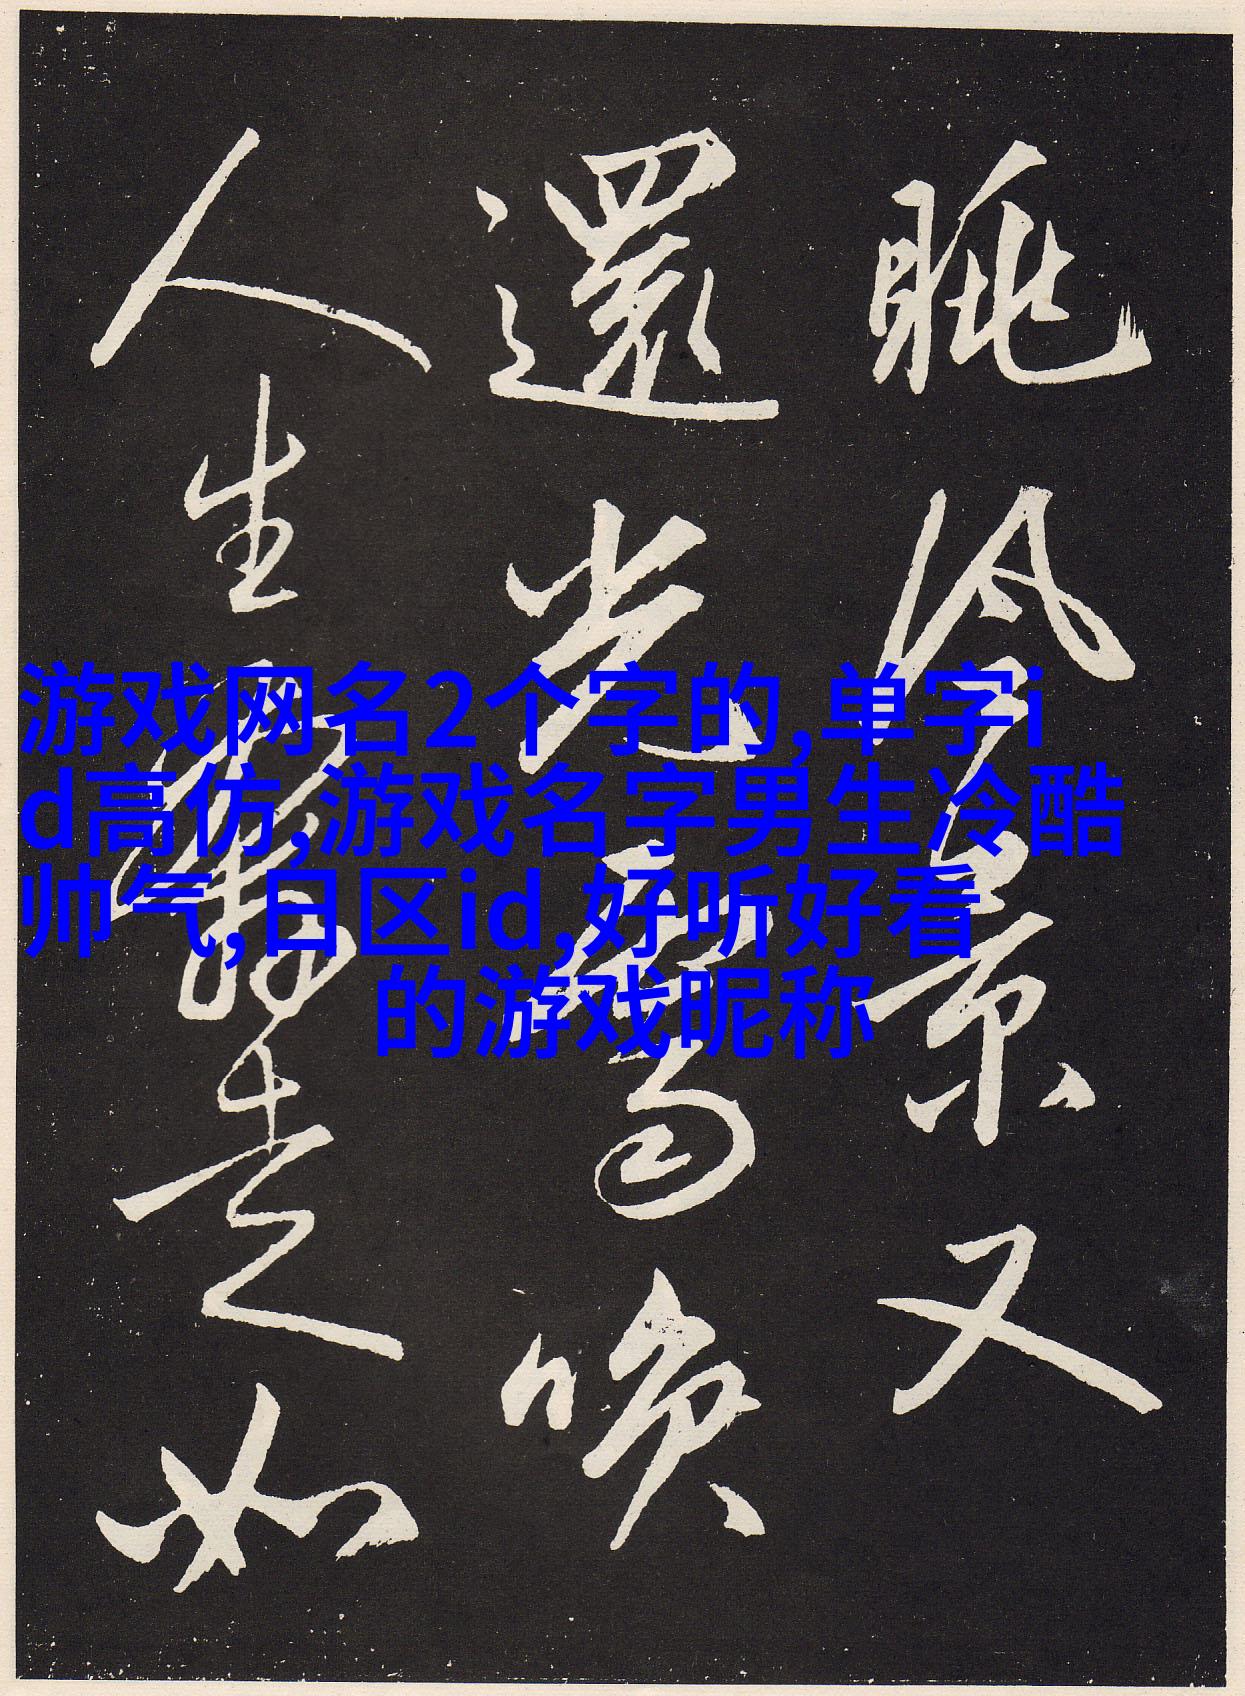 眺冷景又
還光
喚
人生
如
游戏网名2个字的,单字i
d高仿,游戏名字男生冷酷
帅气,日区id,好听好看
的游戏昵称